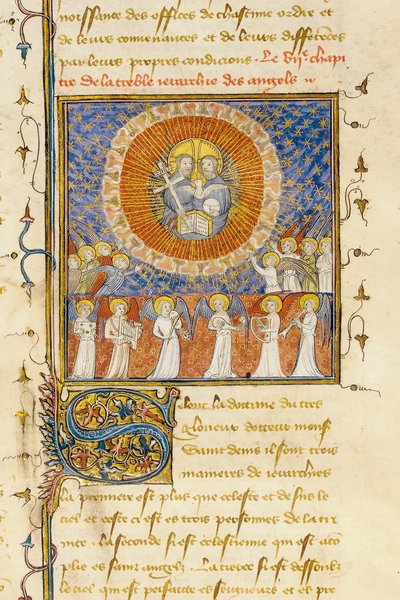 noissance des offices de chascune ordre et
de leurs convenances et de leurs differēces
par leurs propres condicions. Le Ve chapi
tre de la treble ierarchie des angels
Selonc la doctrine du tres
glorieux docteur mons̄
Saint denis il sont trois
manieres de ierarchies
La premiere est plus que celeste et desus le
ciel et ceste ci est es trois persones de la tri
nite. La seconde si est celestienne qui est acō
plie es sains angelz. La tierce si est dessoubz
le ciel qui est es seigneurs et es pre